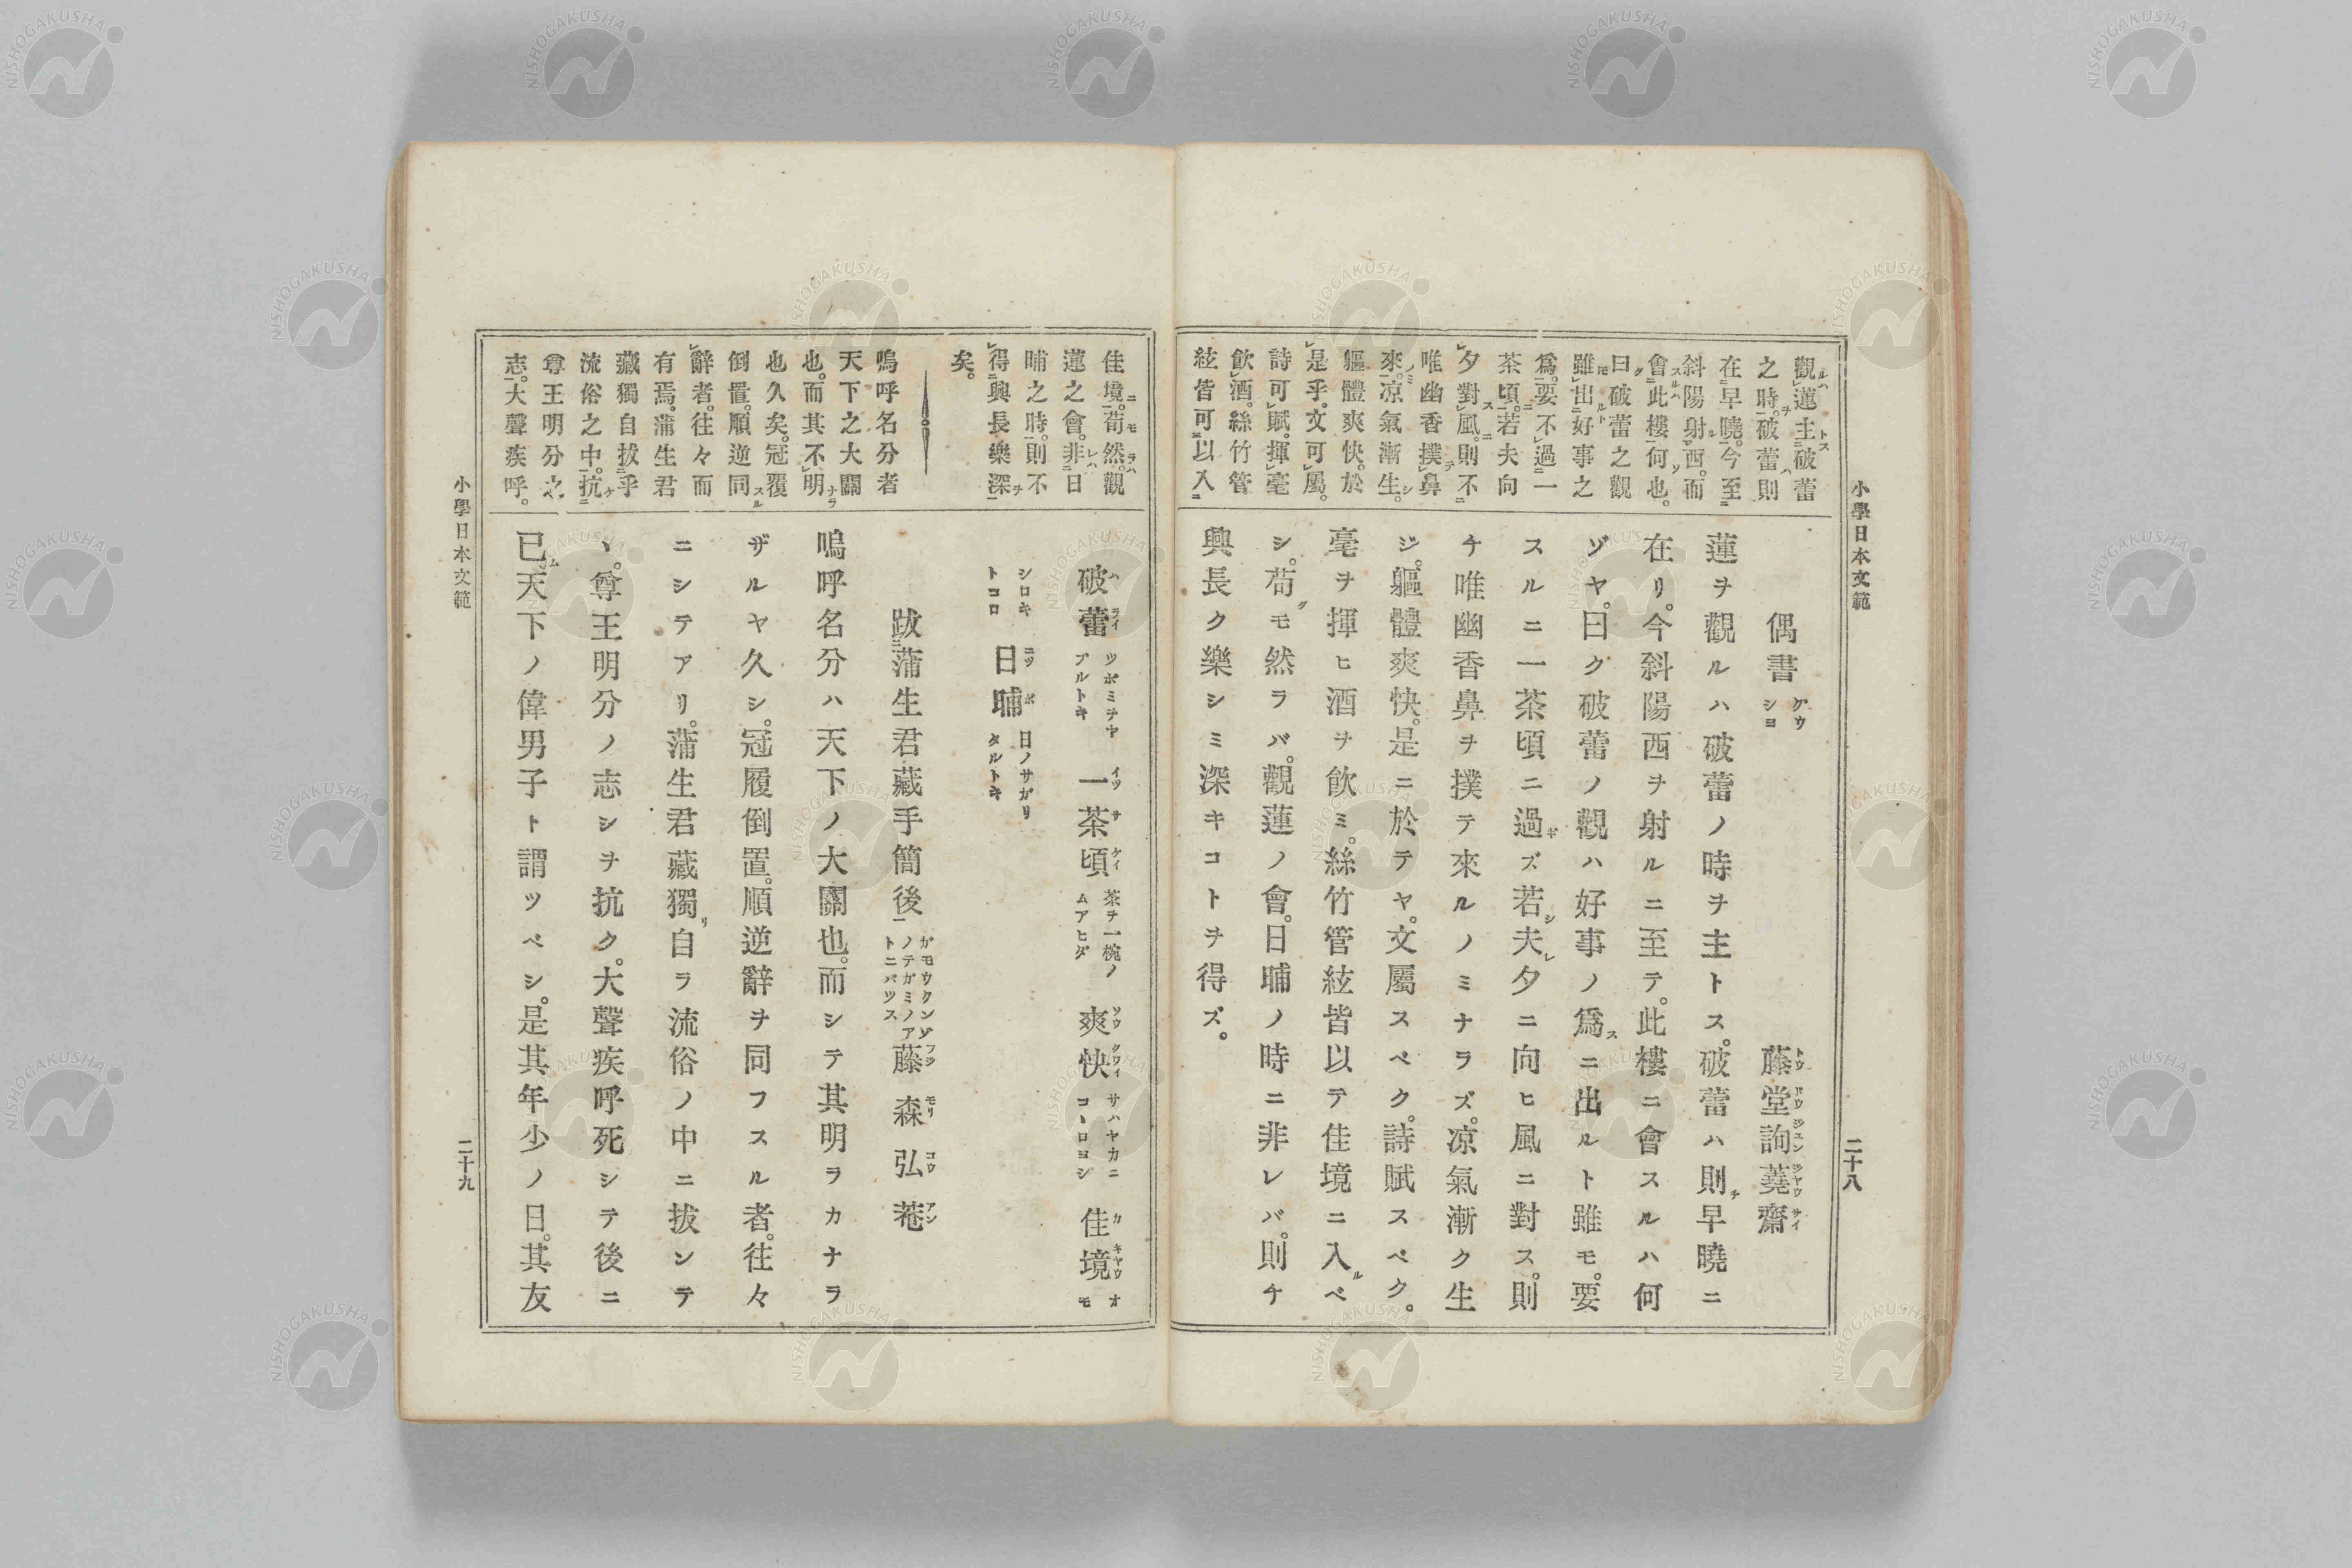 小學日本文範
二十八
觀蓮主破蕾
之時。破蕾則
在早曉。今至
斜陽射西。而
會此樓何也。
曰破蕾之觀
雖出好事之
爲。要不過一
茶頃。若夫向
夕對風。則不
唯幽香撲鼻
來。凉氣漸生。
軀體爽快。於
是乎。文可屬。
詩可賦。揮毫
飮酒。絲竹管
絃皆可以入
偶書 グウシヨ 藤堂詢蕘齋
蓮ヲ觀ルハ破蕾ノ時ヲ主トス。破蕾ハ則チ早曉ニ
在リ。今斜陽西ヲ射ルニ至テ。此樓ニ會スルハ何
ゾヤ。曰ク破蕾ノ觀ハ好事ノ爲スニ出ルト雖モ。要
スルニ一茶頃ニ過ギズ若シ夫レ夕ニ向ヒ風ニ對ス。則
チ唯幽香鼻ヲ撲テ來ルノミナラズ。凉氣漸ク生
ジ。軀體爽快。是ニ於テヤ。文屬スベク。詩賦スベク。
毫ヲ揮ヒ酒ヲ飮ミ。絲竹管絃皆以テ佳境ニ入ルベ
シ。荀クモ然ラバ。觀蓮ノ會。日晡ノ時ニ非レバ。則チ
興長ク樂シミ深キコトヲ得ズ。
佳境。荀然。觀
蓮之會。非日
晡之時。則不
得興長樂深
矣。
嗚呼名分者
天下之大關
也。而其不明
也久矣。冠覆
倒置。順逆同
辭者。往々而
有焉。蒲生君
藏獨自拔乎
流俗之中。抗
尊王明分之
志。大聲疾呼。
破蕾 ツボミチヤブルトキ 一茶頃 茶ヲ一椀ノムアヒダ 爽快 サハヤカニコヽロヨシ 佳境 オモ
シロキトコロ 日晡 日ノサガリタルトキ
跋蒲生君藏手簡後 ガモウクンゾノテガミノアトニバツス 藤森弘菴
嗚呼名分ハ天下ノ大關也。而シテ其明ラカナラ
ザルヤ久シ。冠履倒置。順逆辭ヲ同フスル者。往々
ニシテアリ。蒲生君藏獨リ自ラ流俗ノ中ニ拔ンテ
ヽ。尊王明分ノ志シヲ抗ク。大聲疾呼死シテ後ニ
已ム天下ノ偉男子ト謂ツベシ。是其年少ノ日。其友
小學日本文範
二十九
NISHOGAKUSHA